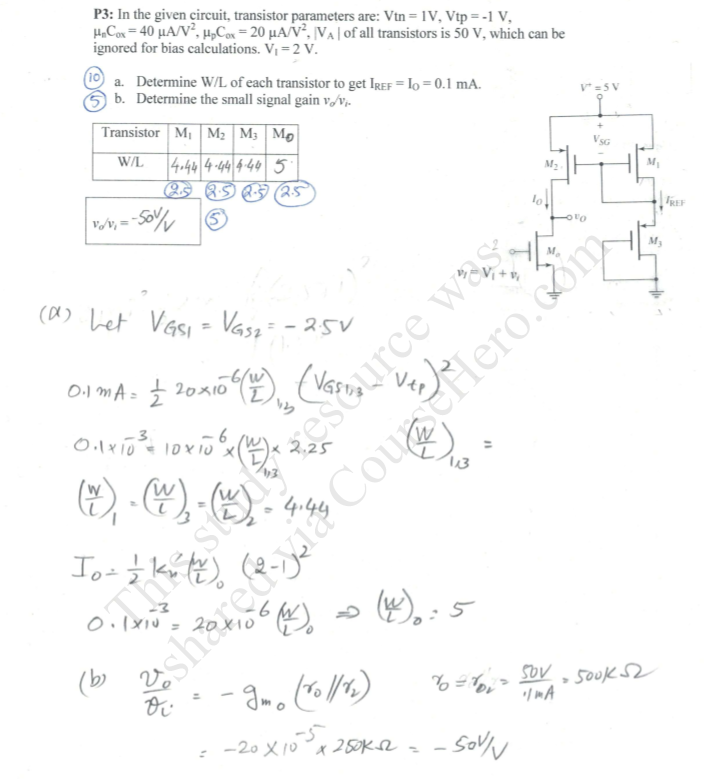 P3: In the given circuit, transistor parameters are: Vtn = 1V, Vtp = -1 V,
μnCox = 40 μA/V², μpCox = 20 μA/V², |VA| of all transistors is 50 V, which can be
ignored for bias calculations. V₁ = 2 V.
10 a. Determine W/L of each transistor to get IREF = IO = 0.1 mA.
5 b. Determine the small signal gain vo/vi.
Transistor M1 M2 M3 Mo
W/L 4.44 4.44 4.44 5
2.5 2.5 2.5 2.5
vo/vi = -50V/V 5
V⁺ = 5 V
+
VSG
-
M2 M1
Io IREF
vo
Mo M3
vI = VI + vi
(a) Let VGS1 = VGS2 = - 2.5V
0.1 mA = 1/2 20×10⁻⁶ (W/L)1,3 (VGS1,3 - Vtp)²
0.1×10⁻³ = 10×10⁻⁶ × (W/L)1,3 × 2.25 (W/L)1,3 =
(W/L)1 = (W/L)3 = (W/L)2 = 4.44
Io = 1/2 kn' (W/L)o (2-1)²
0.1×10⁻³ = 20×10⁻⁶ (W/L)o ⇒ (W/L)o = 5
(b) vo/vi = - gmo (ro//r2) ro = ro2 = 50V/.1mA = 500KΩ
= -20 × 10⁻⁵ × 250KΩ = - 50V/V
This study resource was
shared via CourseHero.com